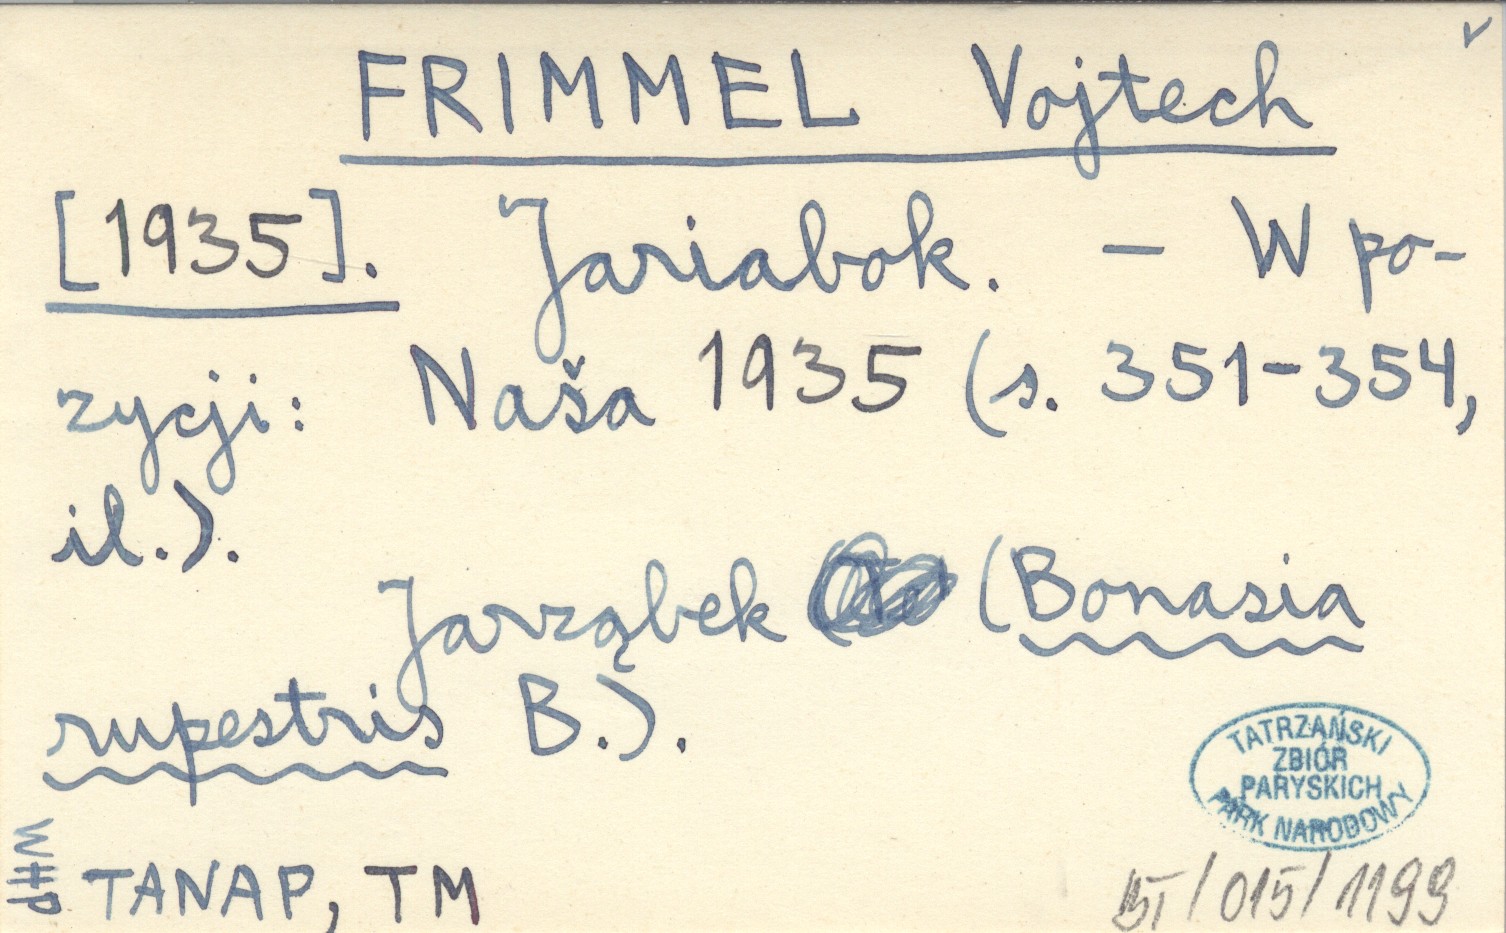 FRIMMEL Vojtech
[1935]. Jariabok. — W po-
zycji: Naša 1935 (s. 351-354,
il.).
Jarząbek (Bonasia
rupestris B.).
TATRZAŃSKI
ZBIÓR
PARYSKICH
PARK NARODOWY
WHP
TANAP, TM
/015/1199